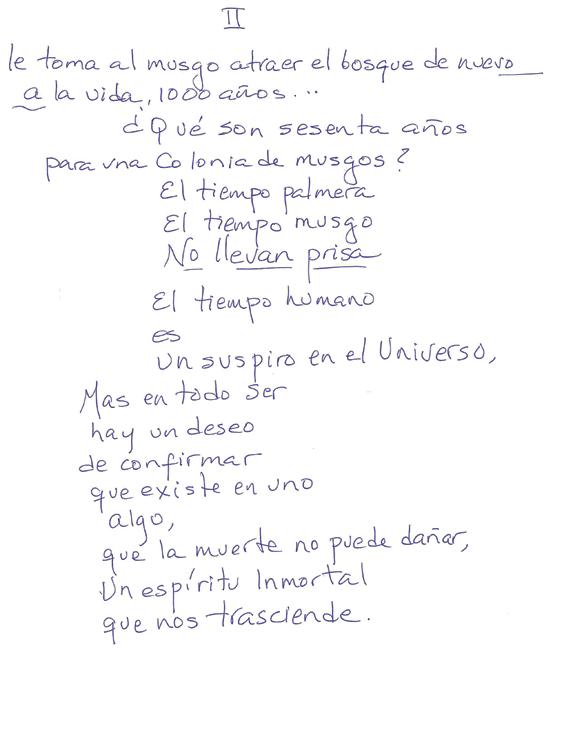 II
le toma al musgo atraer el bosque de nuevo
a la vida, 1000 años...
¿Qué son sesenta años
para una Colonia de musgos?
El tiempo palmera
El tiempo musgo
No llevan prisa
El tiempo humano
es
un suspiro en el Universo,
Mas en todo ser
hay un deseo
de confirmar
que existe en uno
algo,
que la muerte no puede dañar,
Un espíritu Inmortal
que nos trasciende.